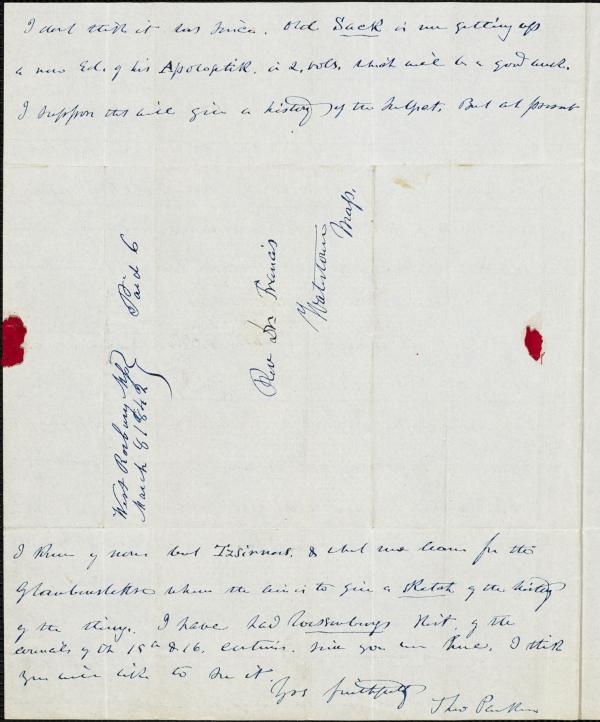 I dont think it has since. Old Sack is now getting up
a new Ed. of his Apologetik. in 2. vols. which will be a good work.
I suppose this will give a history of the subject. But at present
West Roxbury Ms
March 8 1842
Paid 6
Rev Dr Francis
Watertown
Mass.
I know of none but Tzschirners. & what we learn fr the
Glaubenslehre where the aim is to give a sketch of the history
of the thing. I have had Wessenbergs Hist. of the
councils of th 15th & 16. centuries. since you were here. I think
you will like to see it.
Yrs faithfully
Theo Parker